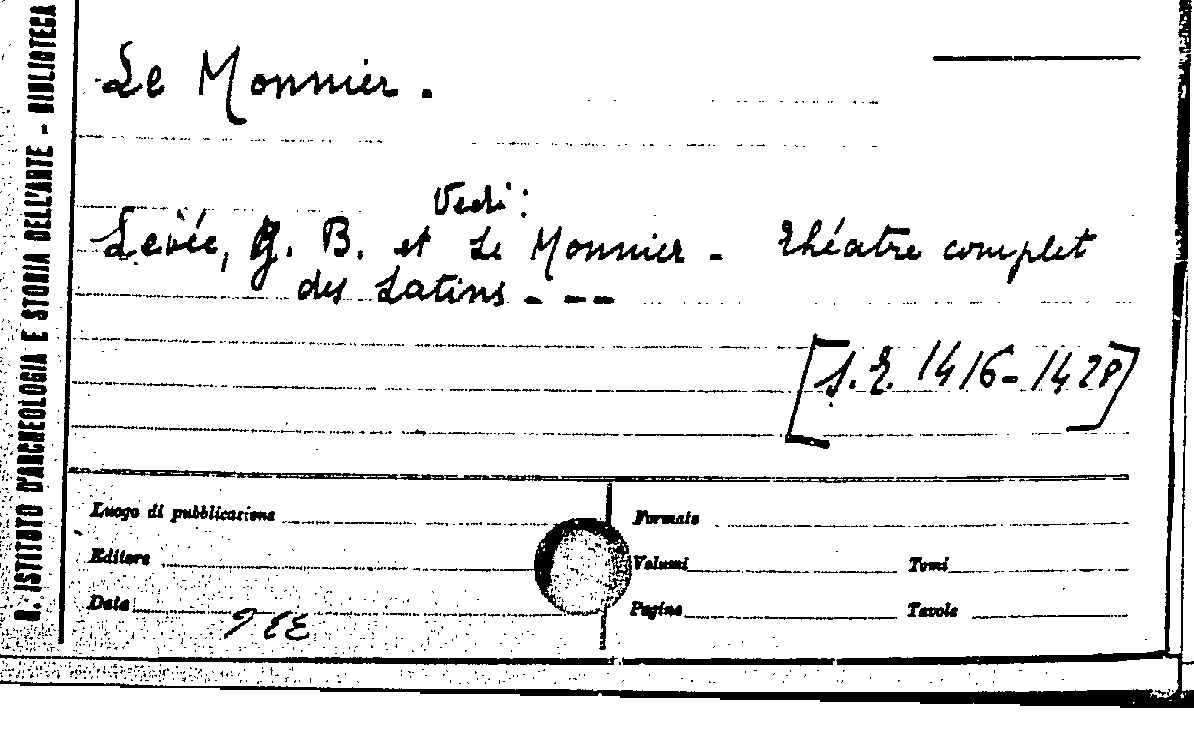 R. ISTITUTO D'ARCHEOLOGIA E STORIA DELL'ARTE - BIBLIOTECA
Le Monnier.
Vedi:
Levée, G. B. et Le Monnier - Théatre complet
des Latins - - -
[S.E. 1416-1428]
Luogo di pubblicazione
Formato
Editore
Volumi Tomi
Data
Pagine Tavole